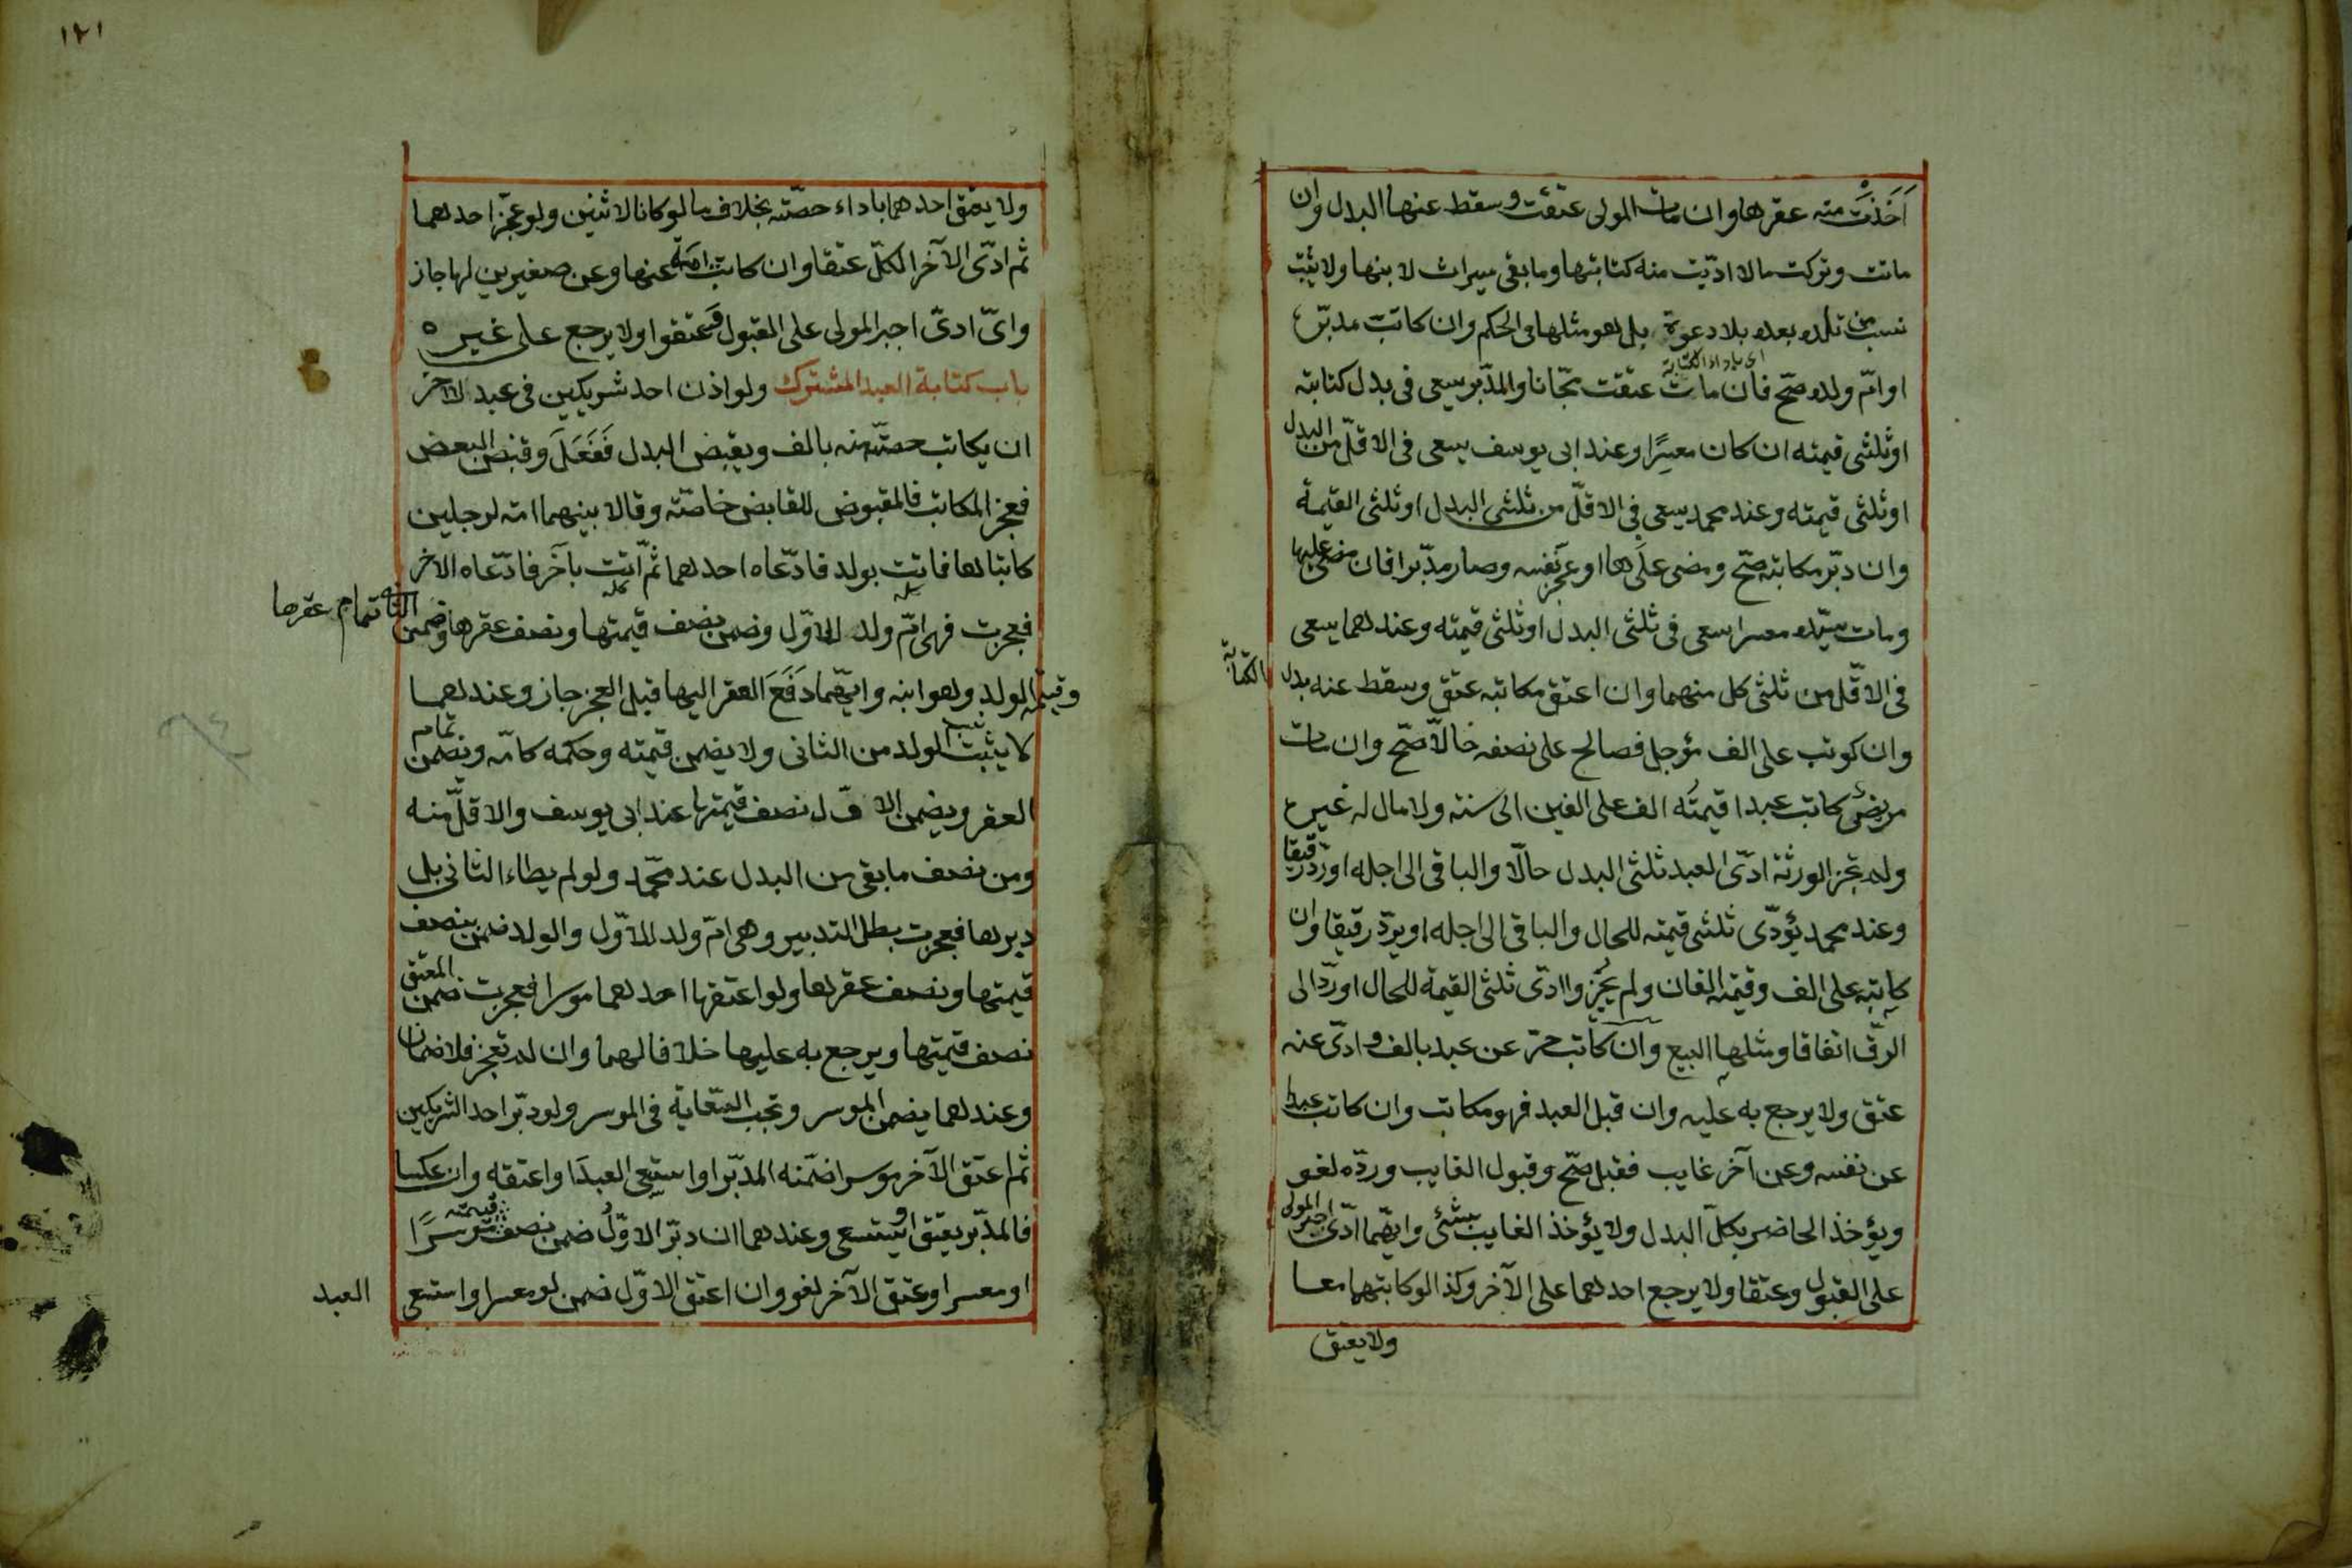 اَخَذَتْ منه عقرها وان مات المولى عتقت وسقط عنها البدل وان
ماتت وتركت مالا ادّيت منه كتابتها وما بقى ميراث لابنها ولا يثبت
نسب من تلده بعده بلا دعوة بل هو مثلها فى الحكم وان كاتب مدبّره
اى باداء الكتابة
او امّ ولده صحّ فان مات عتقت مجّانا والمدّبر سعى فى بدل كتابته
او ثلثى قيمته ان كان معسرًا وعند ابى يوسف يسعى فى الاقلّ من البدل
او ثلثى قيمته وعند محمد يسعى فى الاقلّ من ثلثى البدل او ثلثى القيمة
وان دبّر مكاتبه صحّ ومضى عليها او عجّز نفسه وصار مدبّرا فان مضى عليها
ومات سيّده معسرا سعى فى ثلثى البدل او ثلثى قيمته وعندهما يسعى
فى الاقّل من ثلثى كل منهما وان اعتق مكاتبه عتق وسقط عنه بدل الكتابة
وان كوتب على الف مؤجل فصالح على نصفه حالاّ صحّ وان مات
مريض كاتب عبدا قيمته الف على الفين الى سنة ولا مال له غيره
ولم تجز الورثة ادّى العبد ثلثى البدل حالّا والباقى الى اجله او ردّ رقيقا
وعند محمد يؤدّى ثلثى قيمته للحال والباقى الى اجله او يردّ رقيقا وان
كاتبه على الف وقيمته الفان ولم يجيزوا ادّى ثلثى القيمة للحال او ردّ الى
الرقّ اتفاقا ومثلها البيع وان كاتب حرّ عن عبد بالف وادّى عنه
عتق ولا يرجع به عليه وان قبل العبد فهو مكاتب وان كاتب عبدا
عن نفسه وعن آخر غايب فقبل صحّ وقبول الغايب وردّه لغو
ويؤخذ الحاضر بكلّ البدل ولا يؤخذ الغايب بشئ وايّهما ادّى اجبر المولى
على القبول وعتقا ولا يرجع احدهما على الآخر وكذا لو كاتبهما معا
ولا يعتق
١٢١
ولا يعتق احدهما باداء حصّته بخلاف ما لو كانا لاثنين ولو عجّز احدهما
ثم ادّى الآخر الكلّ عتقا وان كاتب امة عنها وعن صغيرين لها جاز
واىّ ادىّ اجبر المولى على القبول وعتقوا ولا يرجع على غيره
باب كتابة العبد المشترك ولو اذن احد شريكين فى عبد للآخر
ان يكاتب حصّته منه بالف ويقبض البدل فَفَعَلَ وقبض البعض
فعجز المكاتب فالمقبوض للقابض خاصّته وقالا بينهما امة لرجلين
كاتباها فاتت بولد فادّعاه احدهما ثمّ اتت بآخر فادّعاه الآخر
فعجزت فهى امّ ولد الاوّل وضمن نصف قيمتها ونصف عقرها وضمن الثانى تمام عقرها
وقيمة الولد وهو ابنه وايّهما دَفَعَ العقر اليها قبل العجز جاز وعندهما
لا يثبت نسب الولد من الثانى ولا يضمن قيمته وحكمه كامّه ويضمن تمام
العقر ويضمن الاوّل نصف قيمتها عند ابى يوسف والاقلّ منه
ومن نصف ما بقى من البدل عند محمّد ولو لم يطاء الثانى بل
دبرها فعجزت بطل التدبير وهى امّ ولد الاوّل والولد ضمن نصف
قيمتها ونصف عقرها ولو اعتقها احدهما موسرا فعجزت ضمن المعتق
نصف قيمتها ويرجع به عليها خلافا لهما وان لم تعجز فلا ضمان
وعندهما يضمن الموسر وتجب السّعاية فى الموسر ولو دبّر احد الشريكين
ثم اعتق الآخر موسرا ضمّنه المدبّر او استسعى العبد او اعتقه وان عكسا
فالمدبّر يعتق او يستسعى وعندهما ان دبّر الاوّل ضمن نصف قيمته موسرًا
او معسرا وعتق الآخر لغو وان اعتق الاوّل ضمن لو معسرا واستسعى
العبد